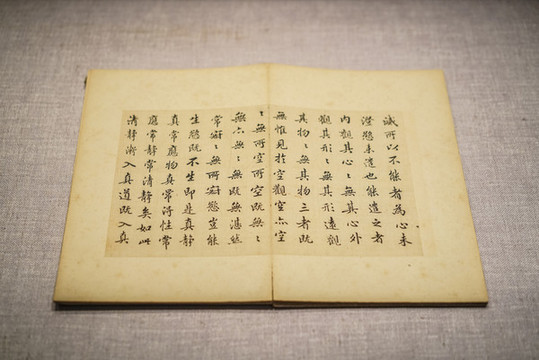 滅所以不能者為心未
澄慾未遣也能遣之者
內觀其心〻無其心外
觀其形〻無其形遠觀
其物〻無其物三者既
無惟見於空觀空亦空
〻無所空所空既無〻
無亦無〻無既無湛然
常寂〻無所寂慾豈能
生慾既不生即是真靜
真常應物真常得性常
應常靜常清靜矣如此
清靜漸入真道既入真